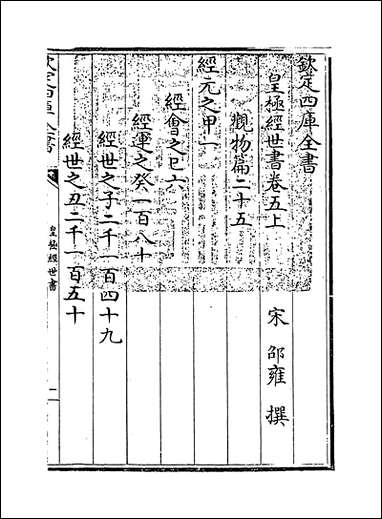 欽定四庫全書
皇極經世書卷五上
宋 邵雍 撰
觀物篇二十五
經元之甲一
經會之巳六
經運之癸一百八十
經世之子二千一百四十九
經世之丑二千一百五十
欽定四庫全書
皇極經世書